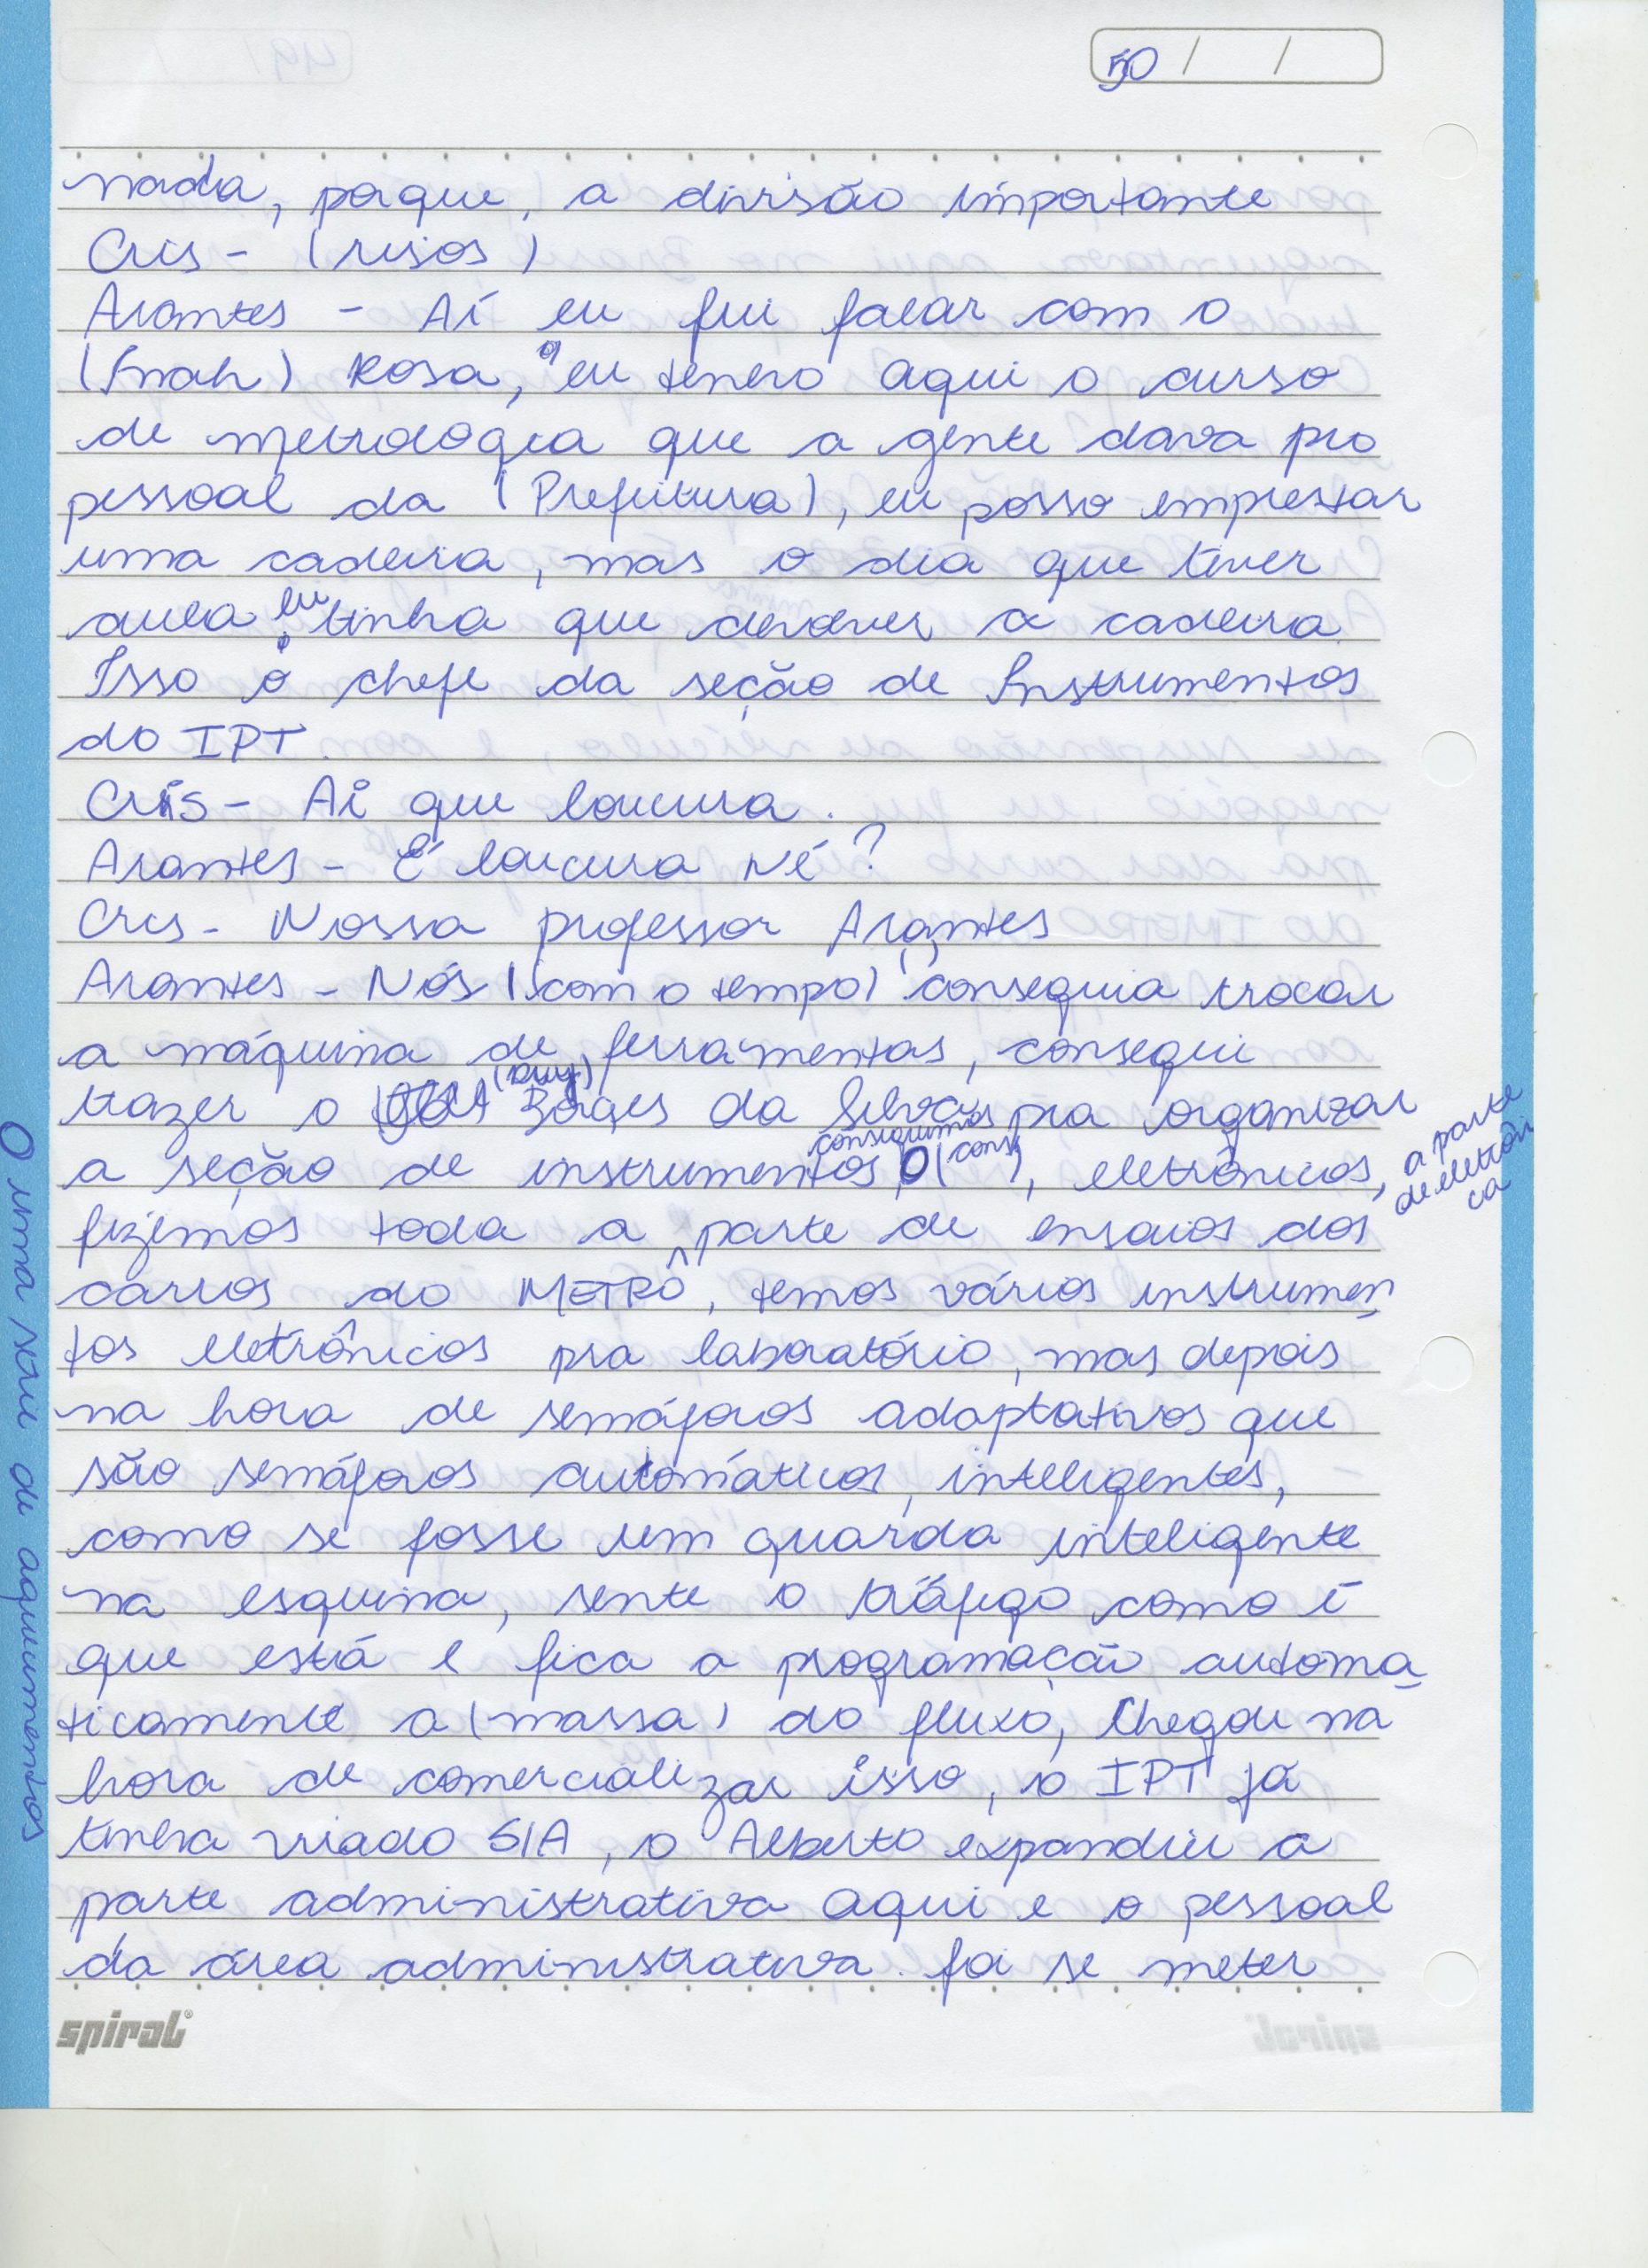 50 / /
nada, porque, a divisão importante
Cris - (risos)
Arantes - Aí eu fui falar com o
Rosa, "eu tenho aqui o curso
de metrologia que a gente dava pro
pessoal da (Prefeitura), eu posso emprestar
uma cadeira, mas o dia que tiver
aula eu tinha que devolver a cadeira
Isso o chefe da seção de Instrumentos
do IPT.
Cris - Ai que loucura.
Arantes - É loucura né?
Cris - Nossa professor Arantes
Arantes - Nós (com o tempo) conseguia trocar
a máquina de ferramentas, consegui
trazer o (Ruy) Borges da Silva pra organizar
a seção de instrumentos, conseguimos O (cons), eletrônicos, a parte de eletrônica
fizemos toda a parte de ensaios dos
carros do METRÔ, temos vários instrumen
tos eletrônicos pra laboratório, mas depois
na hora de semáforos adaptativos que
são semáforos automáticos, inteligentes,
como se fosse um guarda inteligente
na esquina, sente o tráfego como é
que está e fica a programação automa
ticamente a (massa) do fluxo, Chegou na
hora de comercializar isso, o IPT já
tinha virado S/A, o Alberto expandiu a
parte administrativa aqui e o pessoal
da área administrativa foi se meter
O uma série de aquinumentos
spiral®